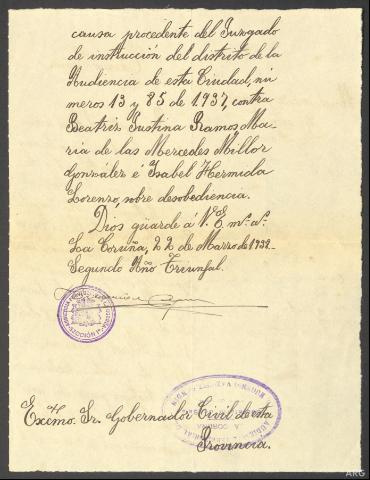 causa procedente del Juzgado
de instrucción del distrito de la
Audiencia de esta Ciudad, nú
meros 13 y 85 de 1937, contra
Beatriz Justina Ramos, Ma-
ria de las Mercedes Millor
González é Isabel Hermida
Lorenzo, sobre desobediencia.
Dios güarde á V. E. mˢ. aˢ.
La Coruña, 22 de Marzo de 1938-
Segundo Año Triunfal.
Excmo. Sr. Gobernador Civil de esta
Provincia.
ARG